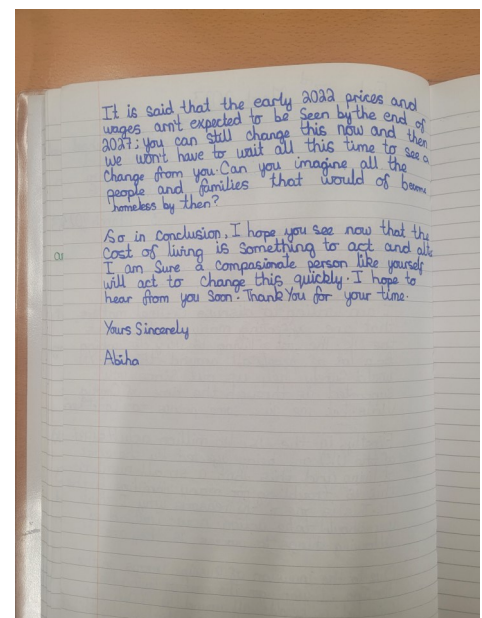 It is said that the early 2022 prices and
wages arn't expected to be seen by the end of
2027; you can still change this now and then
we won't have to wait all this time to see a
change from you. Can you imagine all the
people and families that would of become
homeless by then?
So in conclusion, I hope you see now that the
cost of living is something to act and
I am sure a compasionate person like yourself
will act to change this quickly. I hope to
hear from you soon. Thank You for your time.
Yours Sincerely
Abiha